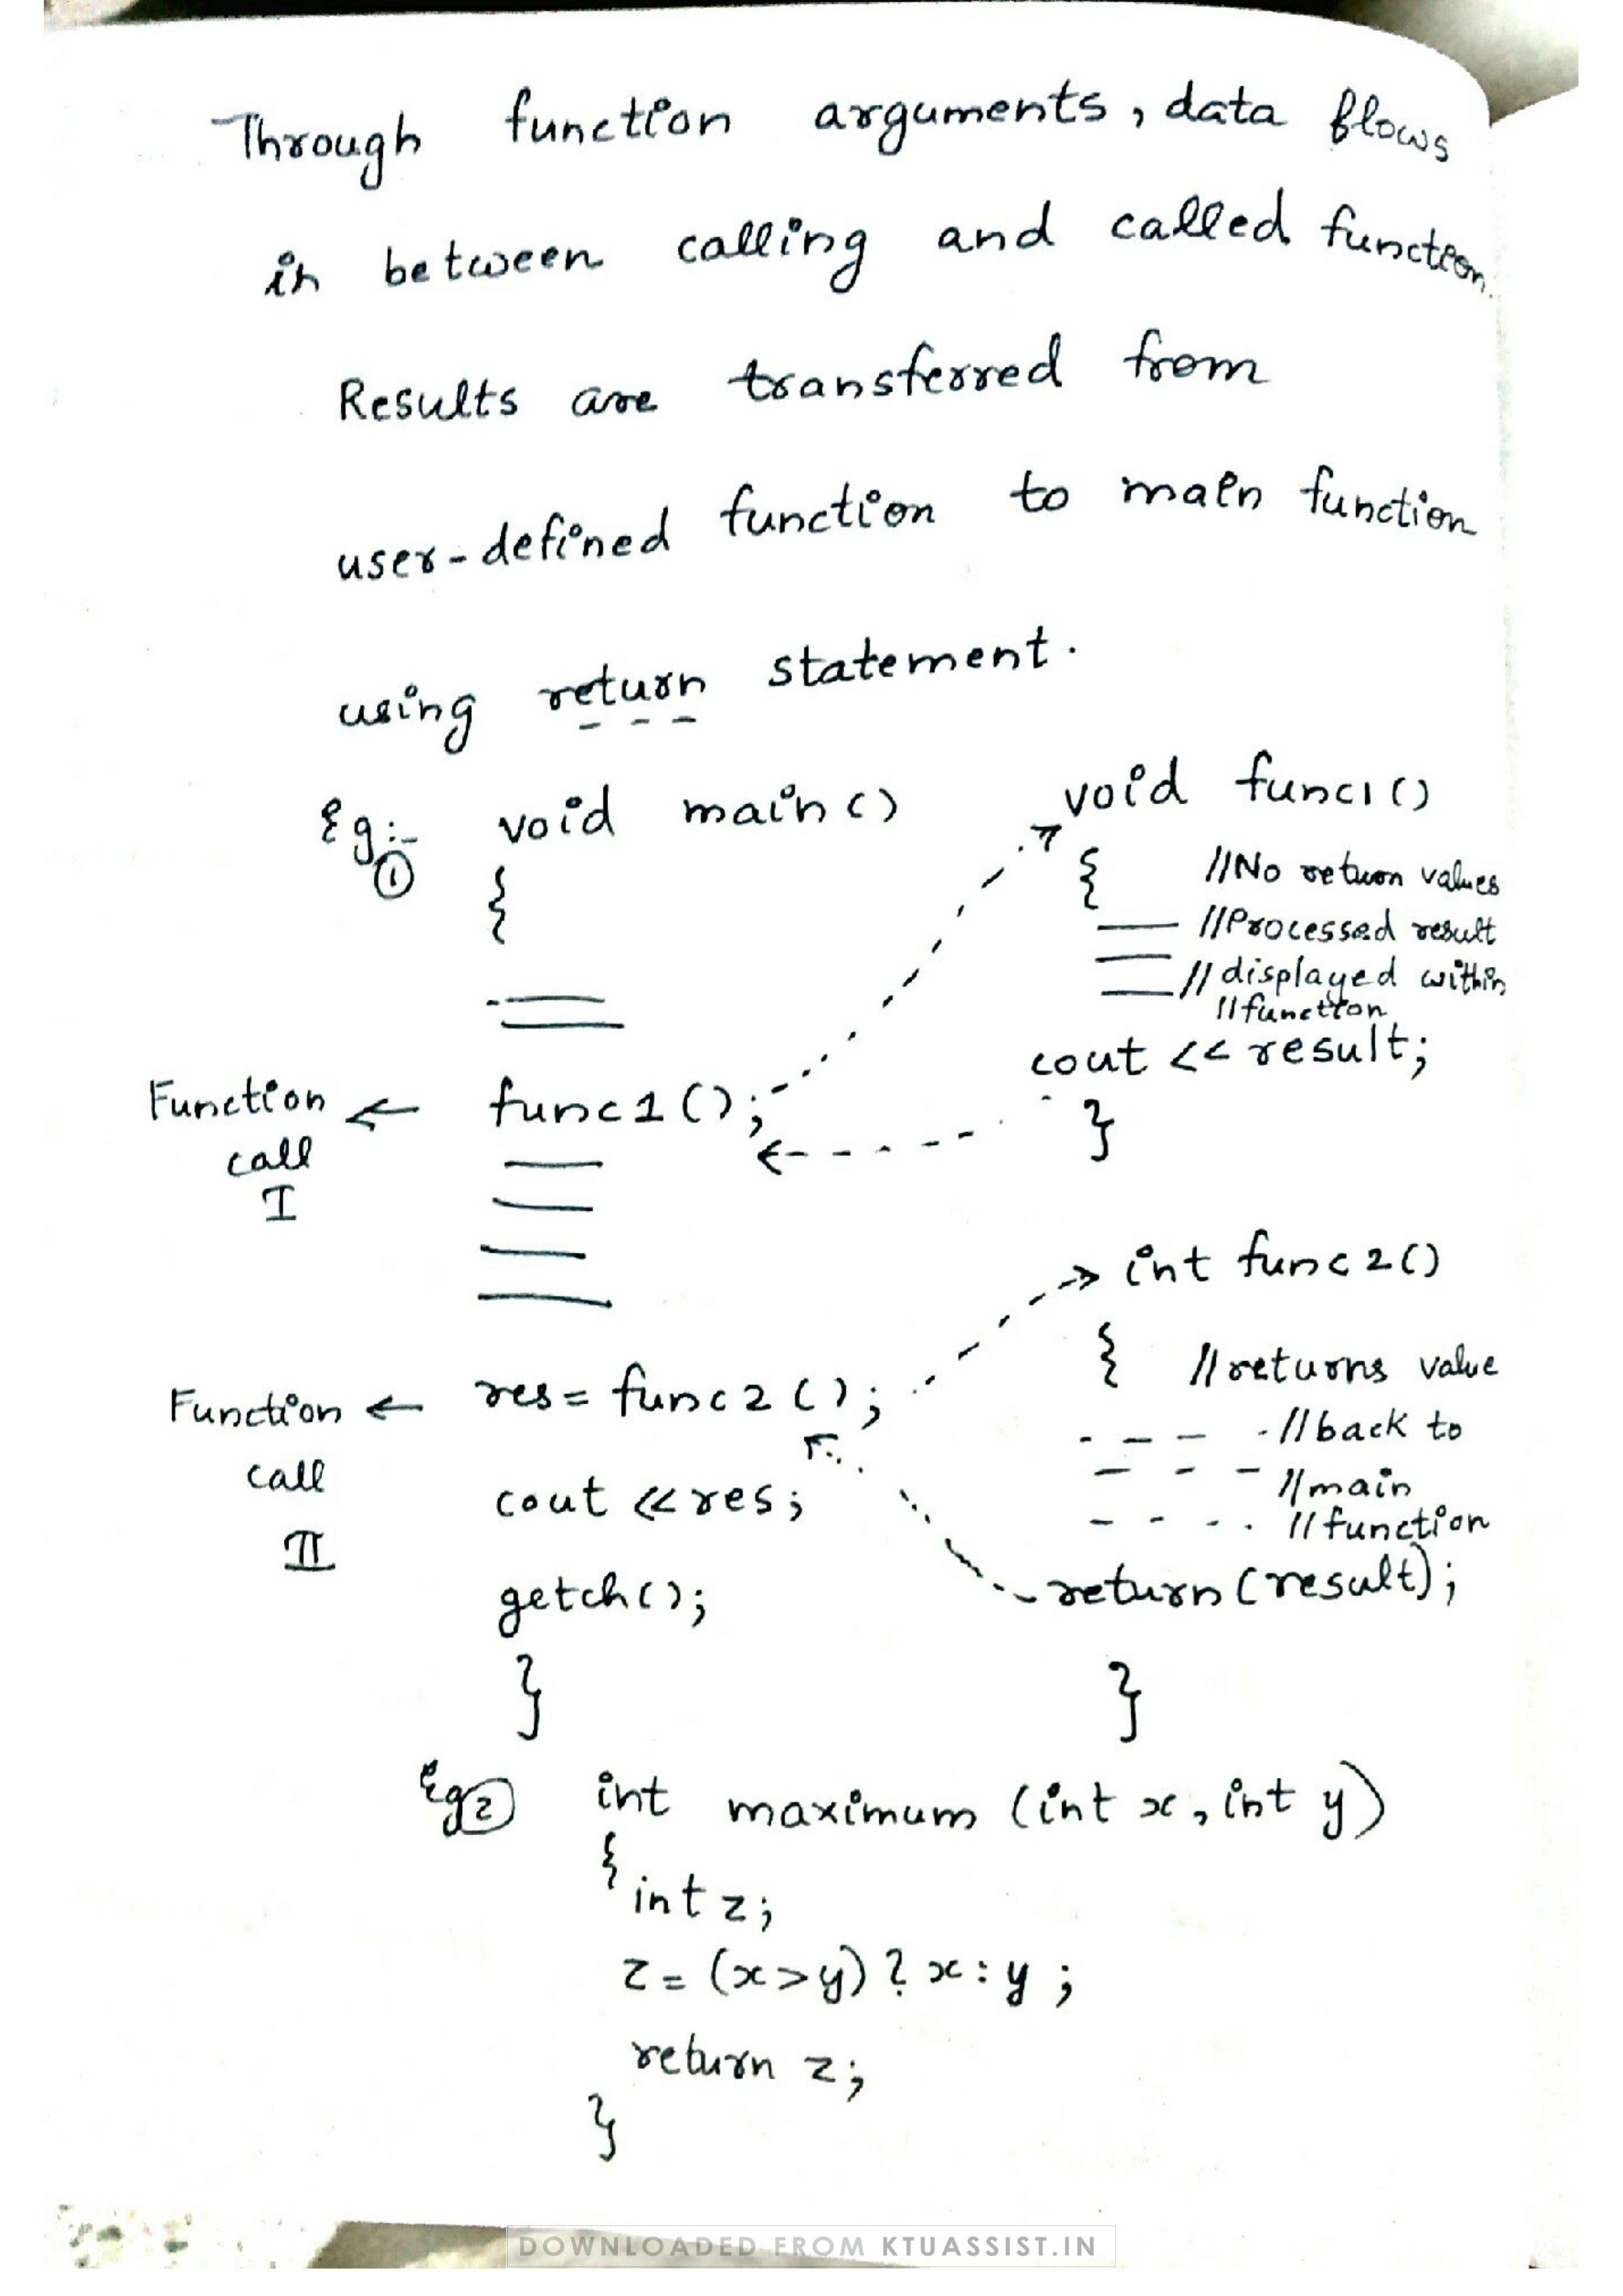 Through function arguments, data flows
in between calling and called function.
Results are transferred from
user-defined function to main function
using return statement.
Eg:- ①
void main()
{
func1();
Function call I
res = func2();
Function call II
cout << res;
getch();
}
void func1()
{ //No return values
//Processed result
// displayed within
//function
cout << result;
}
int func2()
{ //returns value
//back to
//main
//function
return(result);
}
Eg ② int maximum (int x, int y)
{
int z;
z = (x>y) ? x : y ;
return z;
}
DOWNLOADED FROM KTUASSIST.IN